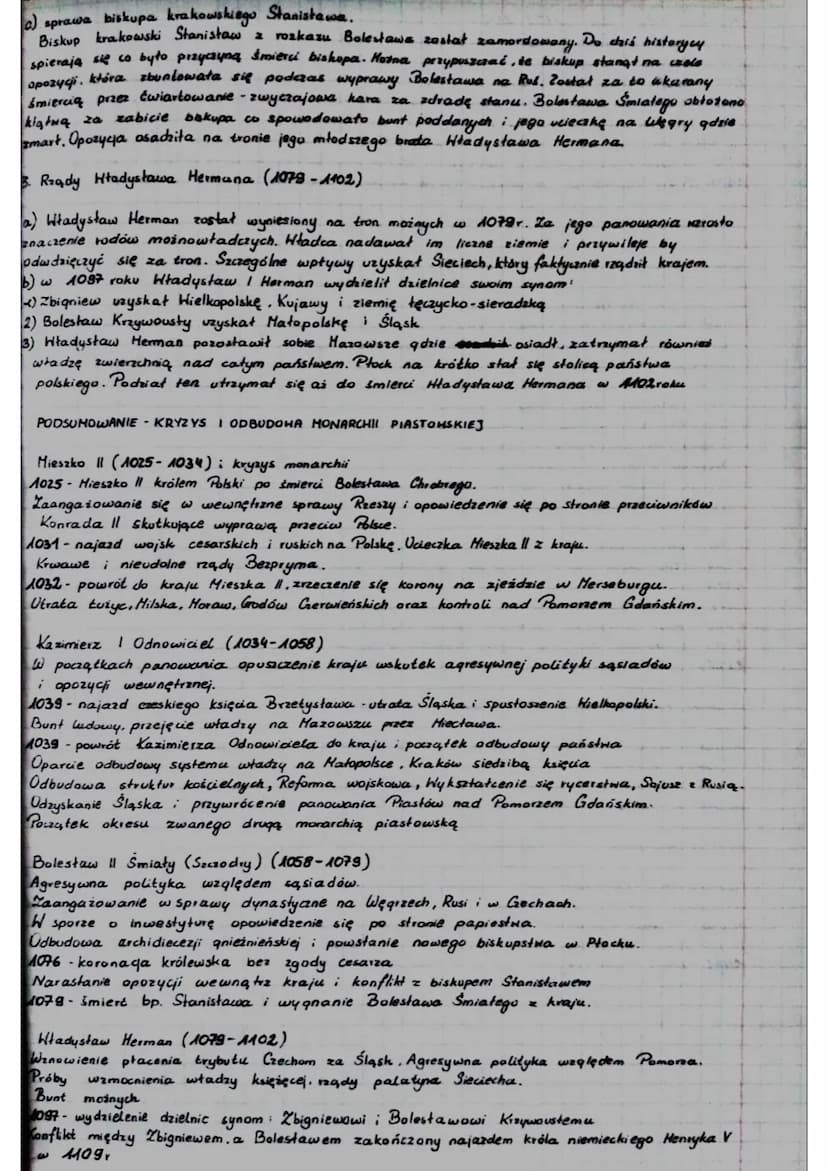 c) sprawa biskupa krakowskiego Stanisława.
Biskup krakowski Stanisław z rozkazu Bolesława został zamordowany. Do dziś historycy
spierają się co było przyczyną śmierci biskupa. Można przypuszczać, że biskup stanął na czele
opozycji, która zbuntowała się podczas wyprawy Bolesława na Ruś. Został za to ukarany
śmiercią przez ćwiartowanie - zwyczajowa kara za zdradę stanu. Bolesława Śmiałego obłożono
klątwą za zabicie biskupa co spowodowało bunt poddanych i jego ucieczkę na Węgry gdzie
zmarł. Opozycja osadziła na tronie jego młodszego brata Władysława Hermana.
3. Rządy Władysława Hermana (1079 - 1102)
a) Władysław Herman został wyniesiony na tron możnych w 1079r. Za jego panowania wzrosło
znaczenie rodów możnowładczych. Władca nadawał im liczne ziemie i przywileje by
odwdzięczyć się za tron. Szczególne wpływy uzyskał Sieciech, który faktycznie rządził krajem.
b) w 1097 roku Władysław I Herman wydzielił dzielnice swoim synom:
1) Zbigniew uzyskał Wielkopolskę, Kujawy i ziemię łęczycko-sieradzką
2) Bolesław Krzywousty uzyskał Małopolskę i Śląsk
3) Władysław Herman pozostawił sobie Mazowsze gdzie osiadł, zatrzymał również
władzę zwierzchnią nad całym państwem. Płock na krótko stał się stolicą państwa
polskiego. Podział ten utrzymał się aż do śmierci Władysława Hermana w 1102roku
PODSUMOWANIE - KRYZYS I ODBUDOWA MONARCHII PIASTOWSKIEJ
Mieszko II (1025 - 1034) i kryzys monarchii
1025 - Mieszko II królem Polski po śmierci Bolesława Chrobrego.
Zaangażowanie się w wewnętrzne sprawy Rzeszy i opowiedzenie się po stronie przeciwników
Konrada II skutkujące wyprawą przeciw Polsce.
1031 - najazd wojsk cesarskich i ruskich na Polskę. Ucieczka Mieszka II z kraju.
Krwawe i nieudolne rządy Bezpryma.
1032 - powrót do kraju Mieszka II, zrzeczenie się korony na zjeździe w Merseburgu.
Utrata Łużyc, Milska, Moraw, Grodów Czerwieńskich oraz kontroli nad Pomorzem Gdańskim.
Kazimierz I Odnowiciel (1034-1058)
W początkach panowania opuszczenie kraju wskutek agresywnej polityki sąsiadów
i opozycji wewnętrznej.
1039 - najazd czeskiego księcia Brzetysława - utrata Śląska i spustoszenie Wielkopolski.
Bunt ludowy, przejęcie władzy na Mazowszu przez Miecława.
1039 - powrót Kazimierza Odnowiciela do kraju i początek odbudowy państwa
Oparcie odbudowy systemu władzy na Małopolsce, Kraków siedzibą księcia
Odbudowa struktur kościelnych, Reforma wojskowa, Wykształcenie się rycerstwa, Sojusz z Rusią.
Odzyskanie Śląska i przywrócenie panowania Piastów nad Pomorzem Gdańskim.
Początek okresu zwanego drugą monarchią piastowską
Bolesław II Śmiały (Szczodry) (1058-1079)
Agresywna polityka względem sąsiadów.
Zaangażowanie w sprawy dynastyczne na Węgrzech, Rusi i w Czechach.
W sporze o inwestyturę opowiedzenie się po stronie papiestwa.
Odbudowa archidiecezji gnieźnieńskiej i powstanie nowego biskupstwa w Płocku.
1076 - koronacja królewska bez zgody cesarza
Narastanie opozycji wewnątrz kraju i konflikt z biskupem Stanisławem
1079 - śmierć bp. Stanisława i wygnanie Bolesława Śmiałego z kraju.
Władysław Herman (1079-1102)
Wznowienie płacenia trybutu Czechom za Śląsk. Agresywna polityka względem Pomorza.
Próby wzmocnienia władzy książęcej, rządy palatyna Sieciecha.
Bunt możnych
1097 - wydzielenie dzielnic synom: Zbigniewowi i Bolesławowi Krzywoustemu
Konflikt między Zbigniewem, a Bolesławem zakończony najazdem króla niemieckiego Henryka V
w 1109r